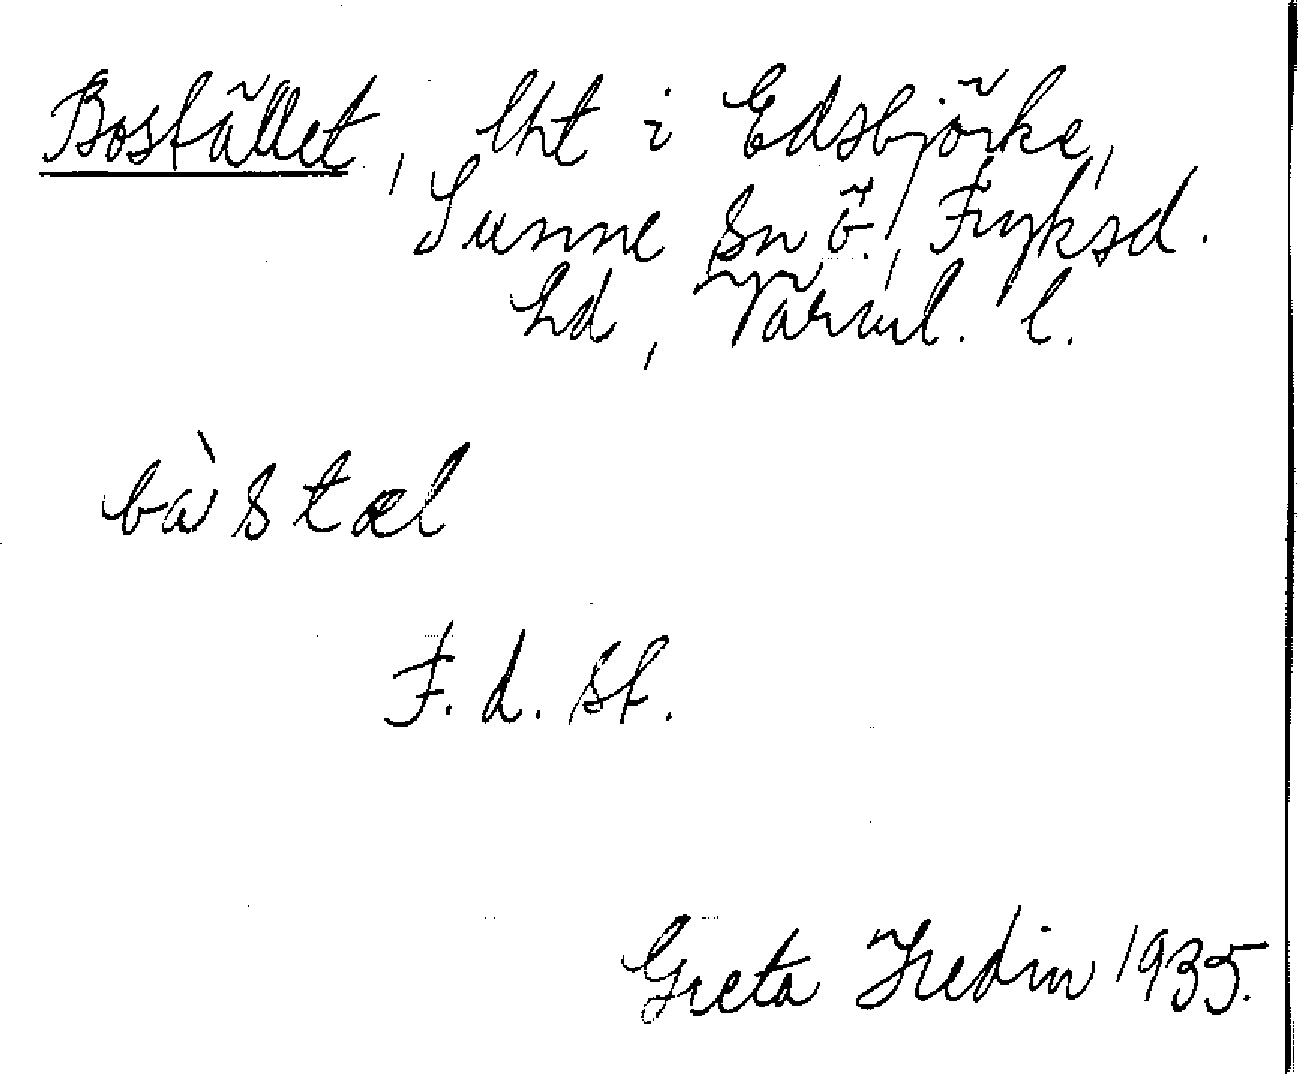 Bostället, lht i Edsbjörke,
Sunne sn Ö. Fryksd.
hd, Värml. l.
bàstæl
F. d. st.
Greta Hedin 1935.